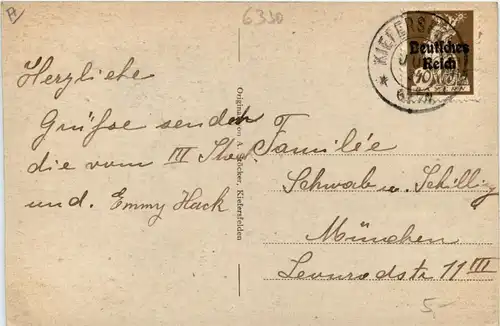 6330
KIEFERS
Deutsches
Reich
Herzliche
Grüße senden
die vom III Stock
und. Emmy Hack
Original von A. Stöcker, Kiefersfelden
Familie
Schwab u. Schillig
München
Leonrodstr 11 III
5-